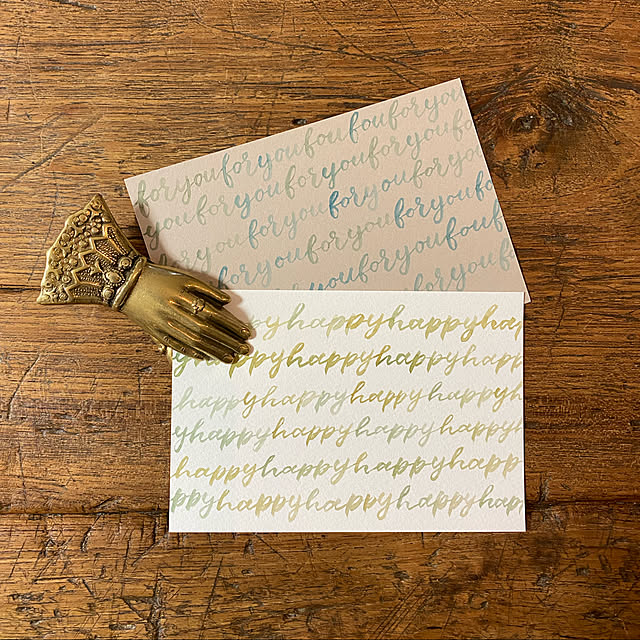 foryouforyoufouforyou
youforyouforyouforyou
foryouforyouforyoufor
youforyouforyoufou
foryou
happyhappyhappyha
happyhappyhappyhappy
happyhappyhappyhapp
yhappyhappyhappyhappy
happyhappyhappyhapp
ppyhappyhappyhappyhap